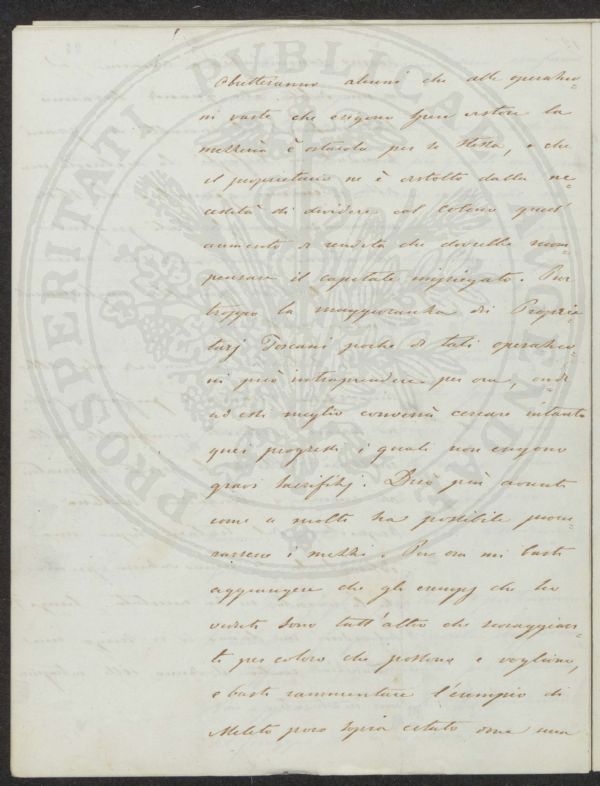 Obietteranno alcuni che alle operazio-
ni vaste che esigono spese estese la
mezzeria è ostacolo per se stessa, e che
il proprietario ne è distolto dalla ne-
cessità di dividere col colono quest'
aumento di rendita che dovrebbe ricom-
pensare il capitale impiegato. Pur
troppo la maggioranza dei Proprie-
tarj Toscani poche di tali operazio-
ni può intraprendere per ora, onde
ad essi meglio converrà cercare intanto
quei progressi i quali non esigono
gravi sacrifizj. Dirò più avanti
come a molti sia possibile procu-
rarsene i mezzi. Per ora mi basti
aggiungere che gli esempj che ho
veduti sono tutt'altro che scoraggian-
ti per coloro che possono e vogliono,
e basti rammentare l'esempio di
Meleto poco sopra citato dove una
PROSPERITATI PVBLICAE AVGENDAE